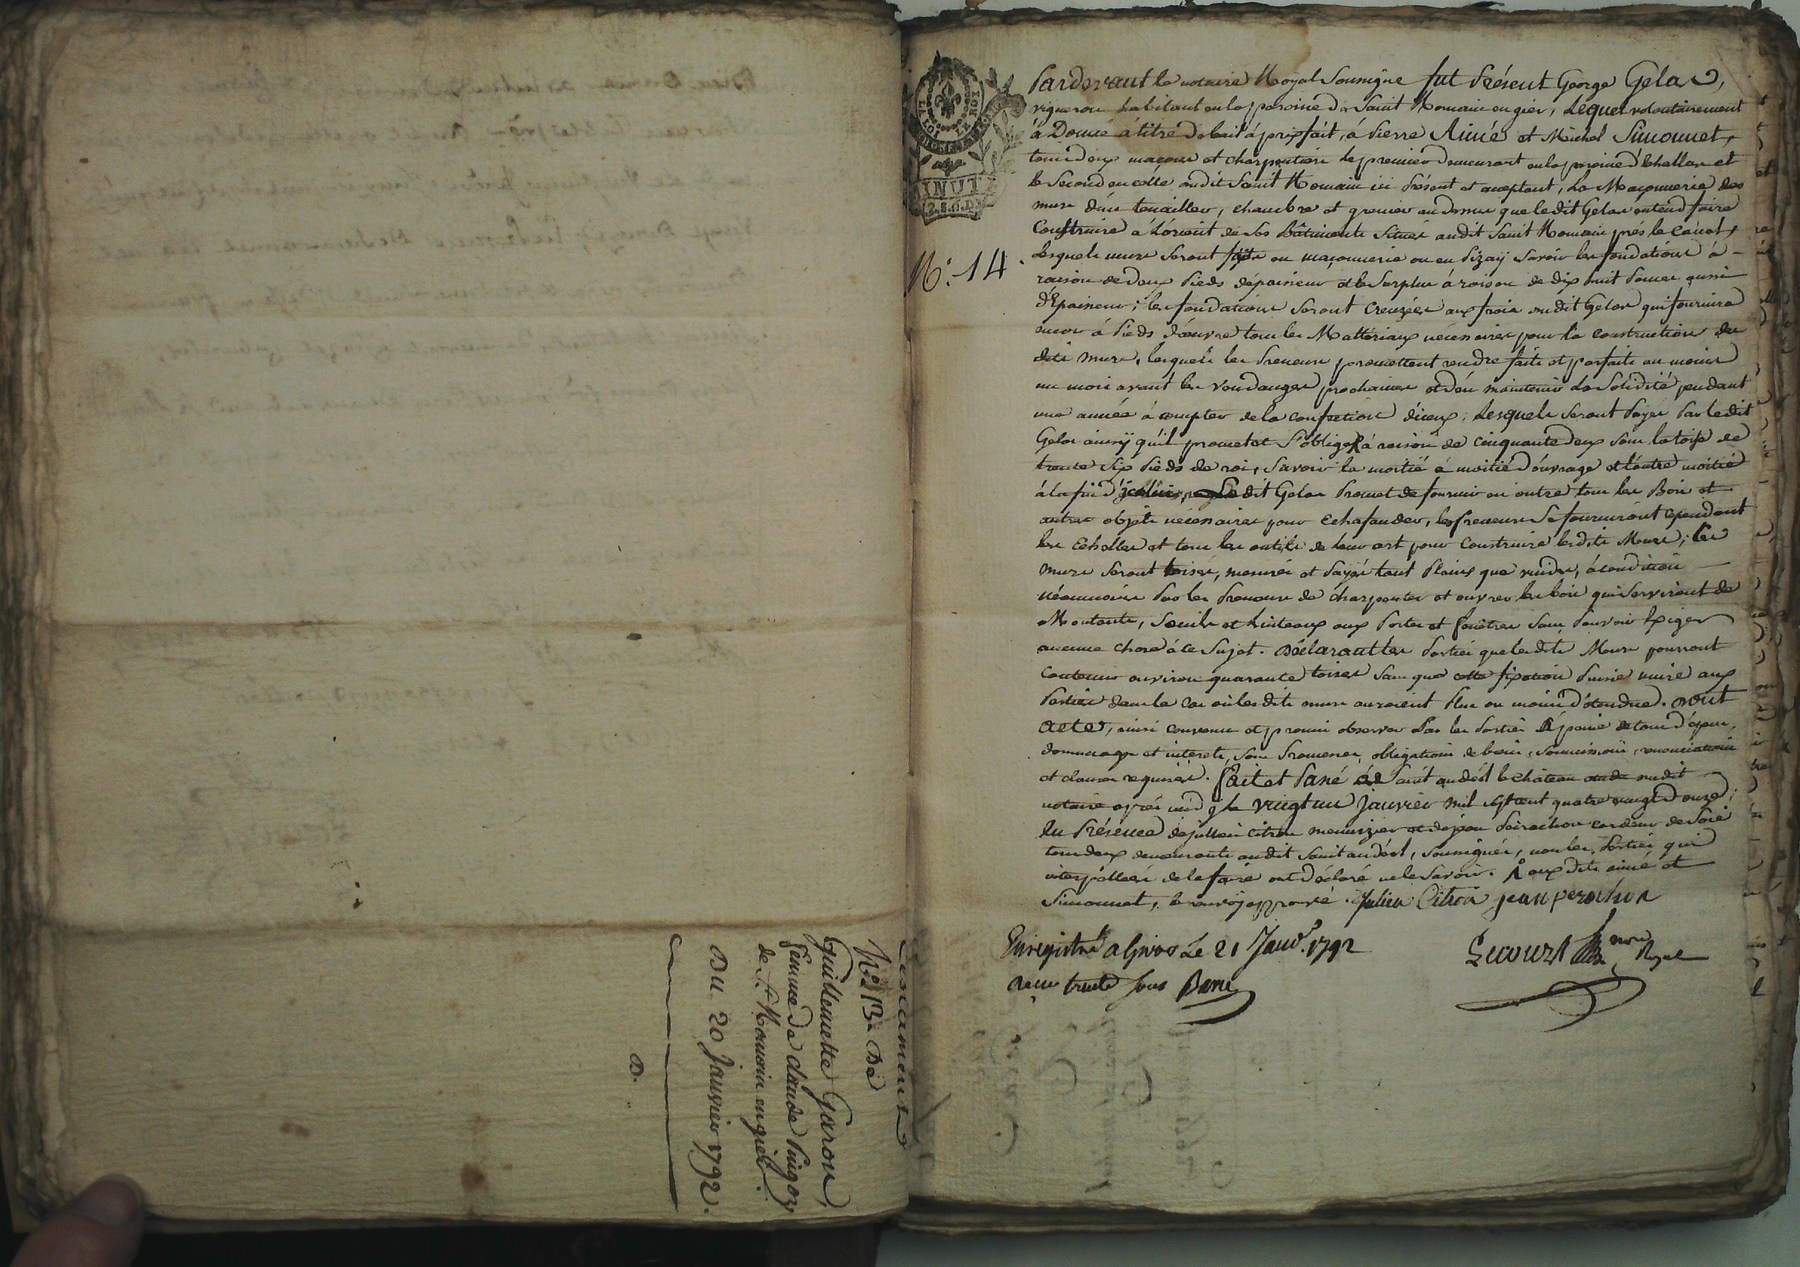 Testament
N.º 13. De
Guillemette Garon,
femme de Claude Pingon
de St. Romain en gier.
Du 20 Janvier 1792.
D.
LA LOI LE ROI
MINUTE
2. S. 6. D.
N.º 14
Pardevant le notaire Royal Soussigné fut Présent George Gelas,
vigneron habitant en la paroisse de Saint Romain en gier, Lequel volontairement
à Donné à titre de bail à prixfait, à Pierre Aimé et Michel Simonnet,
tous deux maçons et charpentiers le premier demeurant en la paroisse d'Echallas et
le Second en celle dudit Saint Romain ici Présent et acceptant, La Maçonnerie des
murs d'un tenailler, chambre et grenier au dessus que ledit Gelas entend faire
Construire à L'orient de ses Bâtiments Situés audit Saint Romain près le canal,
Lesquels murs seront faits en maçonnerie ou en Pizay Savoir les fondations à
raison de deux Pieds d'épaisseur et le Surplus à raison de dix huit Pouces aussi
d'Epaisseur; les fondations Seront Creuzées aux frais dudit Gelas qui fournira
encor à Pieds d'œuvre tous les Mattériaux nécessaires pour la construction des
dits murs, lesquels les Preneurs promettent rendre faits et parfaits au moins
un mois avant les vendanges prochaines et d'en maintenir la Solidité pendant
une année à compter de la confection d'iceux; Lesquels seront Payés Par ledit
Gelas ainsy qu'il promet et S'oblige à raison de cinquante deux sous la toise de
trente Six Pieds de roi, Savoir la moitié à moitié d'ouvrage et l'autre moitié
à la fin d'icelui, Ledit Gelas Promet de fournir en outre tous les Bois et
autres objets nécessaires pour Echafauder, les Preneurs Se fourniront cependant
les Echelles et tous les outils de leur art pour Construire lesdits Murs; les
murs seront toisés, mesurés et Payés tant Pleins que vuides, à condition
néanmoins Par les Preneurs de charpenter et ouvrer les bois qui Serviront de
Montants, Seuils et Linteaux aux Portes et fenêtres Sans Pouvoir Exiger
aucune chose à ce Sujet. Déclarant les Parties que lesdits Murs pourront
Contenir environ quarante toises Sans que cette fixation Puisse nuire aux
Parties dans le cas où lesdits murs auroient Plus ou moins d'étendue. Dont
acte, ainsi convenu et promis observer Par les Parties à peine de tous dépens,
dommages et intérêts, Sous Promesses, obligations de biens, Soumissions, renonciations
et clauses requises. fait et Passé à Saint andéol le château étude dudit
notaire après midy le vingt un Janvier mil Sept cent quatre vingt douze;
En Présence de Jullien Citron menuizier et de Jean Peirachon cardeur de Soie
tous deux demeurants audit Saint andéol, Soussignés, non les Parties qui
interpellées de le faire ont Déclaré ne le Savoir. aux dits aimé et
Simonnet, le renvoy approuvé. Julien Citron jean perachon
Enregistré à Givors Le 21 Janv.r 1792
reçu trente sous
nore Royal